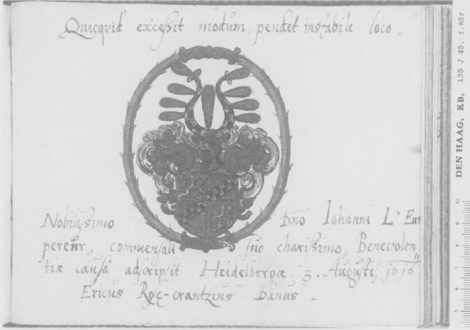 Quicquid excessit modum, pendet instabile loco.
Nobilissimo Dno Iohanni L'Em
pereur, commensali suo charissimo, Benevolen
tiæ causa adscripsit Heidelbergæ 3. Augusti, 1616
Ericus Ros-crantzius Danus.
DEN HAAG, KB, 135 J 45, f.85r